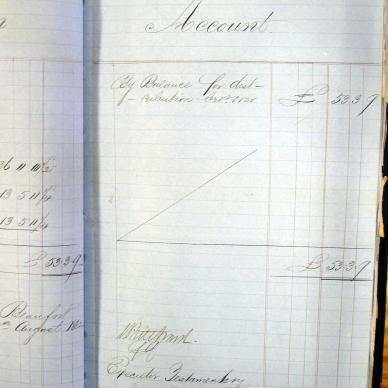 Account
By Balance for dist-
-ribution bro't over £ 53.3.9
26 11 10½
13 5 11¼
13 5 11¼
£ 53.3.9
£ 53.3.9
Beaufort
August
Executor Testamentary